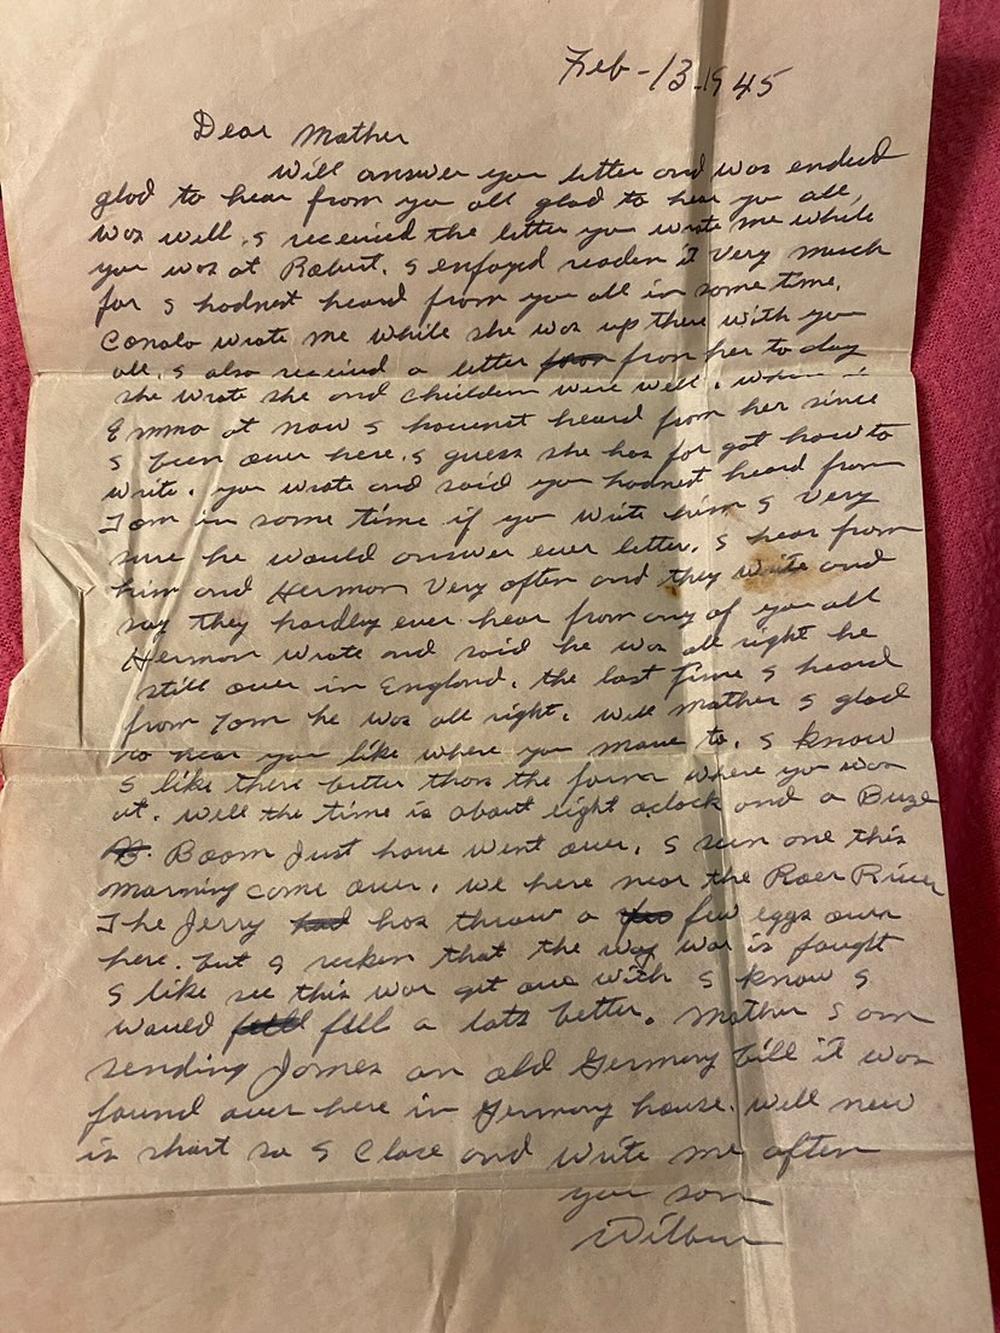 Feb-13-1945
Dear Mother
Will answer you letter and was endeed
glad to hear from you all glad to hear you all,
was well. I received the letter you wrote me while
you was at Robert. I enjoyed readen it very much
for I hadnest heard from you all in some time.
wrote me while she was up there with you
all, I also received a letter from her to day
she wrote she and children were well.
Emma at now I havenst heard from her since
I been over here. I guess she has for got how to
write. you wrote and said you hadnest heard from
Tom in some time if you write him I very
sure he would answer ever letter. I hear from
him and Herman very often and they write and
say they hardley ever hear from any of you all
Herman wrote and said he was all right he
still over in England. the last time I heard
from Tom he was all right. Well Mother I glad
to hear you like where you move to. I know
I like there better than the farm where you was
at. Well the time is about eight oclock and a Buze
Boom Just have went over. I seen one this
morning come over. we here near the Roer River
The Jerry has throw a few eggs over
here. But I recken that the way war is fought
I like see this war get over with I know I
would fell a lots better. Mother I am
sending James an old Germany bill it was
found over here in Germany house. Well new
is short so I close and write me often
you son
Wilbur